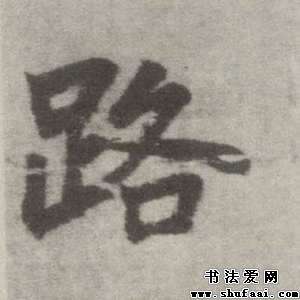 路
书法爱网
www.shufaai.com